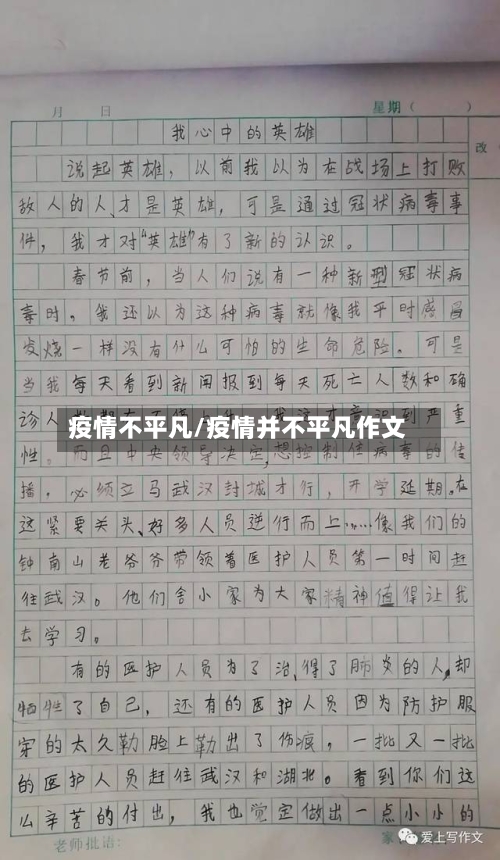 月 日 星期( )
改
我心中的英雄
说起英雄，以前我以为在战场上打败
敌人的人、才是英雄，可是通过冠状病毒事
件，我才对“英雄”有了新的认识。
春节前，当人们说有一种新型冠状病
毒时，我还以为这种病毒就像我平时感冒
发烧一样没有什么可怕的生命危险。可是
当我每天看到新闻报到每天死亡人数和确
诊人
疫情不平凡/疫情并不平凡作文
严重
性。而且中央领导决定，想控制住病毒的传
播，必须立马武汉封城才行，开学延期。在
这紧要关头、好多人员逆行而上……像我们的
钟南山老爷爷带领着医护人员第一时间赶
往武汉。他们舍小家为大家精神值得让我
去学习。
有的医护人员为了治、得了肺炎的人，却
牺牲了自己，还有的医护人员因为防护服
穿的太久勒脸上勒出了伤痕，一批又一批
的医护人员赶往武汉和湖北。看到你们这
么辛苦的付出，我也觉定做出一点小小的
老师批语： 家
爱上写作文